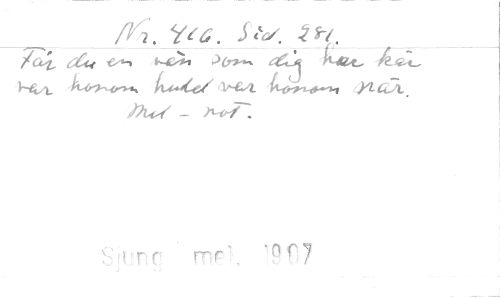 Nr. 416. Sid. 281.
Får du en vän som dig har kär
var honom huld var honom när.
Mel - not.
Sjung mel. 1907